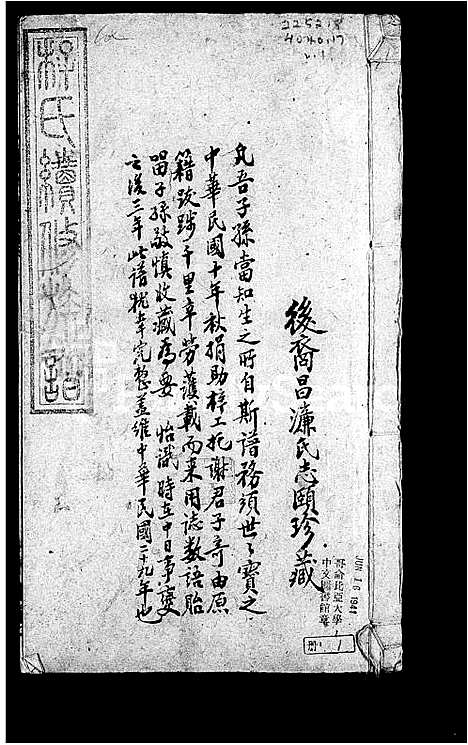 225218
4040.17
v.1
後裔昌濂氏志頤珍藏
凡吾子孫當知生之所自斯譜務須世々寶之
中華民國十年秋捐助梓工托謝君子奇由原
籍跋踄千里辛勞護載而来用誌数語貽
留子孫敬慎收藏爲要 怡識 時在中日事變
之後三年此譜犹幸完整蓋維中華民國二十九年也
氏續修族譜
JUN 16 1941
哥侖比亞大學
中文圖書館藏
册
1